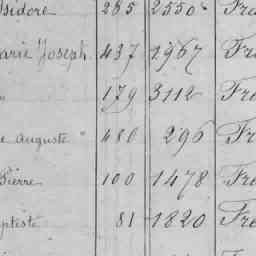 Isidore 285 2550 Fra
Marie Joseph 437 1967 Fra
" 179 3112 Fra
e auguste " 480 296 Fra
Pierre 100 1478 Fra
aptiste 81 1820 Fra